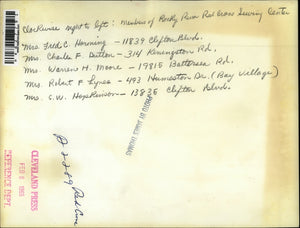 Clockwise right to left: Members of Rocky River Red Cross Sewing Center
Mrs. Fred C. Horning - 11839 Clifton Blvd.
Mrs. Charles F. Dutton - 314 Kensington Rd.
Mrs. Warren H. Moore - 19815 Battersea Rd.
Mrs. Robert F. Lynes - 493 Humeston Dr. (Bay Village)
Mrs. G.W. Hopkinson - 13835 Clifton Blvd.
PHOTO BY JAMES THOMAS
Red Cross
CLEVELAND PRESS
FEB 8 1965
REFERENCE DEPT.